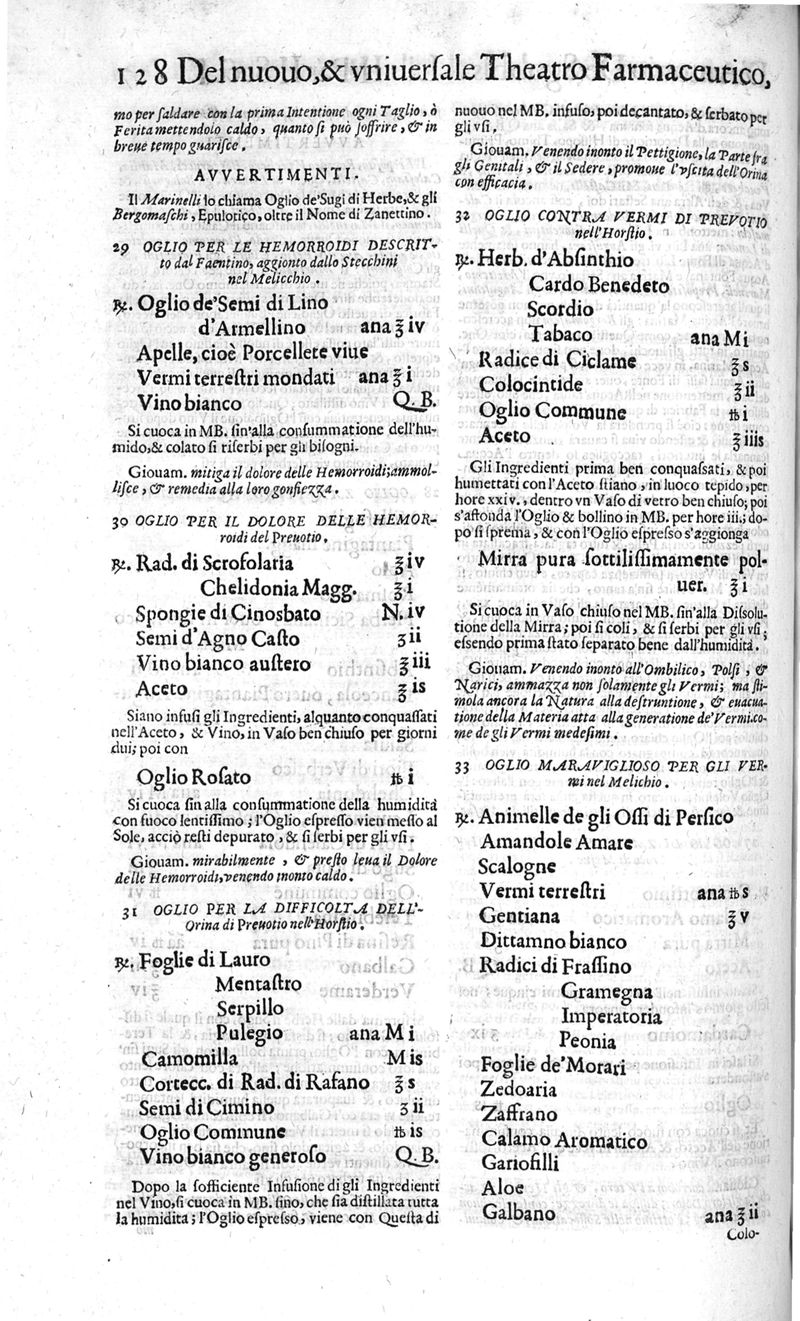 128 Del nuouo, & vniuerſale Theatro Farmaceutico,
mo per ſaldare con la prima Intentione ogni Taglio, ò
Ferita mettendolo caldo, quanto ſi può ſoffrire, & in
breue tempo guariſce.
AVVERTIMENTI.
Il Marinelli lo chiama Oglio de'Sugi di Herbe, & gli
Bergomaſchi, Epulotico, oltre il Nome di Zanettino.
29 OGLIO PER LE HEMORROIDI DESCRIT-
to dal Faentino, aggionto dallo Stecchini
nel Melicchio.
℞. Oglio de'Semi di Lino
d'Armellino ana ℥ iv
Apelle, cioè Porcellete viue
Vermi terreſtri mondati ana ℥ i
Vino bianco Q. B.
Si cuoca in MB. ſin'alla conſummatione dell'hu-
mido, & colato ſi riſerbi per gli biſogni.
Giouam. mitiga il dolore delle Hemorroidi; ammol-
liſce, & remedia alla loro gonfiezza.
30 OGLIO PER IL DOLORE DELLE HEMOR-
roidi del Preuotio.
℞. Rad. di Scrofolaria ℥ iv
Chelidonia Magg. ℥ i
Spongie di Cinosbato N. iv
Semi d'Agno Caſto ʒ ii
Vino bianco auſtero ℥ iii
Aceto ℥ is
Siano infuſi gli Ingredienti, alquanto conquaſſati
nell'Aceto, & Vino, in Vaſo ben chiuſo per giorni
dui; poi con
Oglio Roſato ℔ i
Si cuoca ſin alla conſummatione della humidità
con fuoco lentiſſimo; l'Oglio eſpreſſo vien meſſo al
Sole, acciò reſti depurato, & ſi ſerbi per gli vſi.
Giouam. mirabilmente, & preſto leua il Dolore
delle Hemorroidi, venendo inonto caldo.
31 OGLIO PER LA DIFFICOLTA DELL'-
Orina di Preuotio nell'Horſtio.
℞. Foglie di Lauro
Mentaſtro
Serpillo
Pulegio ana M i
Camomilla M is
Cortecc. di Rad. di Rafano ℥ s
Semi di Cimino ʒ ii
Oglio Commune ℔ is
Vino bianco generoſo Q. B.
Dopo la ſofficiente Infuſione di gli Ingredienti
nel Vino, ſi cuoca in MB. ſino, che ſia diſtillata tutta
la humidita; l'Oglio eſpreſſo, viene con Queſta di
nuouo nel MB. infuſo, poi decantato, & ſerbato per
gli vſi.
Giouam. Venendo inonto il Pettigione, la Parte fra
gli Genitali, & il Sedere, promoue l'vſcita dell'Orina
con efficacia.
32 OGLIO CONTRA VERMI DI PREVOTIO
nell'Horſtio.
℞. Herb. d'Abſinthio
Cardo Benedeto
Scordio
Tabaco ana M i
Radice di Ciclame ℥ s
Colocintide ℥ ii
Oglio Commune ℔ i
Aceto ℥ iiis
Gli Ingredienti prima ben conquaſſati, & poi
humettati con l'Aceto ſtiano, in luoco tepido, per
hore xxiv., dentro vn Vaſo di vetro ben chiuſo; poi
s'affonda l'Oglio & bollino in MB. per hore iii.; do-
po ſi ſprema, & con l'Oglio eſpreſſo s'aggionga
Mirra pura ſottiliſſimamente pol-
uer. ℥ i
Si cuoca in Vaſo chiuſo nel MB. ſin'alla Diſſolu-
tione della Mirra; poi ſi coli, & ſi ſerbi per gli vſi,
eſſendo prima ſtato ſeparato bene dall'humidità.
Giouam. Venendo inonto all'Ombilico, Polſi, &
Narici, ammazza non ſolamente gli Vermi; ma ſti-
mola ancora la Natura alla deſtruntione, & euacua-
tione della Materia atta alla generatione de'Vermi, co-
me de gli Vermi medeſimi.
33 OGLIO MARAVIGLIOSO PER GLI VER-
mi nel Melichio.
℞. Animelle de gli Oſſi di Perſico
Amandole Amare
Scalogne
Vermi terreſtri ana ℔ s
Gentiana ℥ v
Dittamno bianco
Radici di Fraſſino
Gramegna
Imperatoria
Peonia
Foglie de'Morari
Zedoaria
Zaffrano
Calamo Aromatico
Gariofilli
Aloe
Galbano ana ℥ ii
Colo-